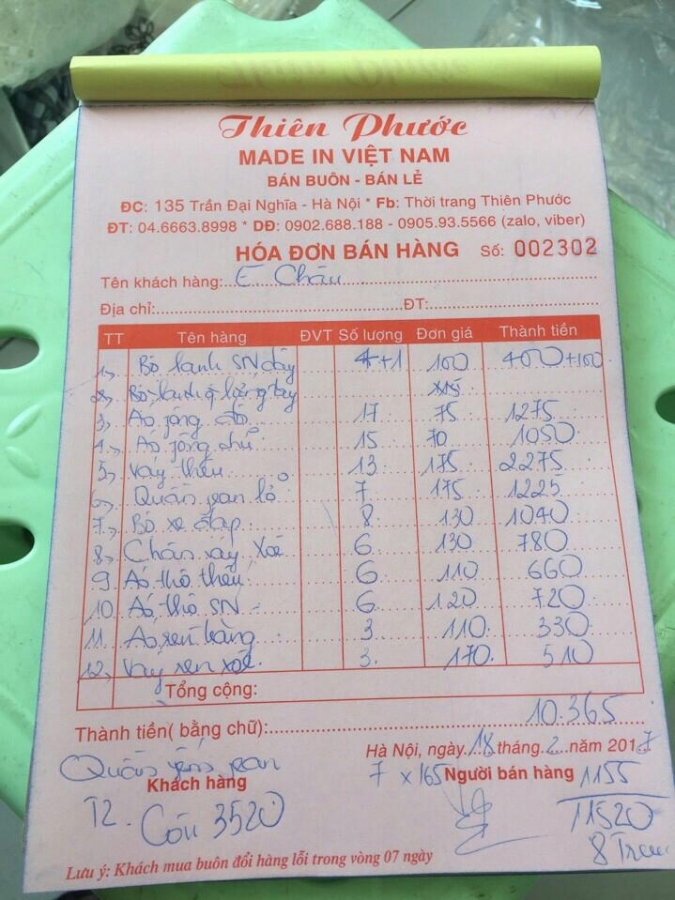 Thiên Phước
MADE IN VIỆT NAM
BÁN BUÔN - BÁN LẺ
ĐC: 135 Trần Đại Nghĩa - Hà Nội * Fb: Thời trang Thiên Phước
ĐT: 04.6663.8998 * DĐ: 0902.688.188 - 0905.93.5566 (zalo, viber)
HÓA ĐƠN BÁN HÀNG Số: 002302
Tên khách hàng: E Châu
Địa chỉ: ĐT:
TT Tên hàng ĐVT Số lượng Đơn giá Thành tiền
1, Bộ lanh SN dây 4+1 100 400+100
2, Bộ lanh lửng tay
3, Áo 17 75 1275
4, Áo chữ 15 70 1050
5, Váy thêu 13 175 2275
6, Quần jean lỡ 7 175 1225
7, Bộ xe đạp 8 130 1040
8, Chân váy xoè 6 130 780
9 Áo thô thêu 6 110 660
10 Áo thô SN 6 120 720
11 Áo ren 3 110 330
12, Váy ren xoè 3 170 510
Tổng cộng:
Thành tiền( bằng chữ): 10.365
Hà Nội, ngày 18 tháng 2 năm 2017
Quần jean 7 x 165 Người bán hàng 1155
Khách hàng
T2. Còn 3520 11520
8 Treu
Lưu ý: Khách mua buôn đổi hàng lỗi trong vòng 07 ngày